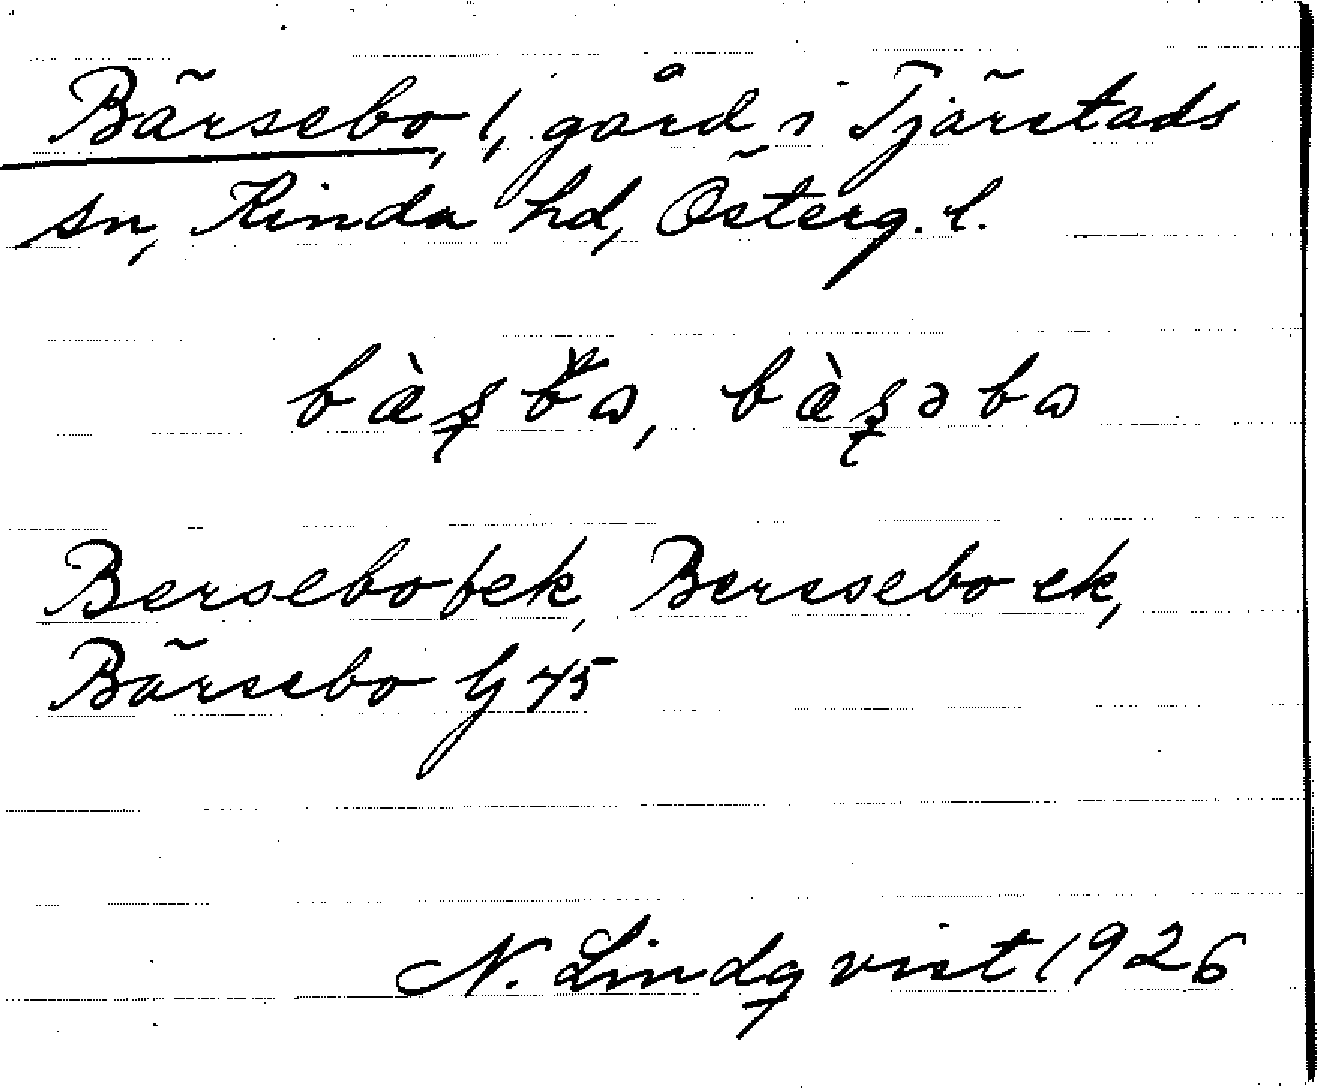 Bärsebo, 1, gård i Tjärstads
sn, Kinda hd, Österg. l.
Bersebo fek, Berssebo ek,
Bärsebo G 45
N. Lindqvist 1926